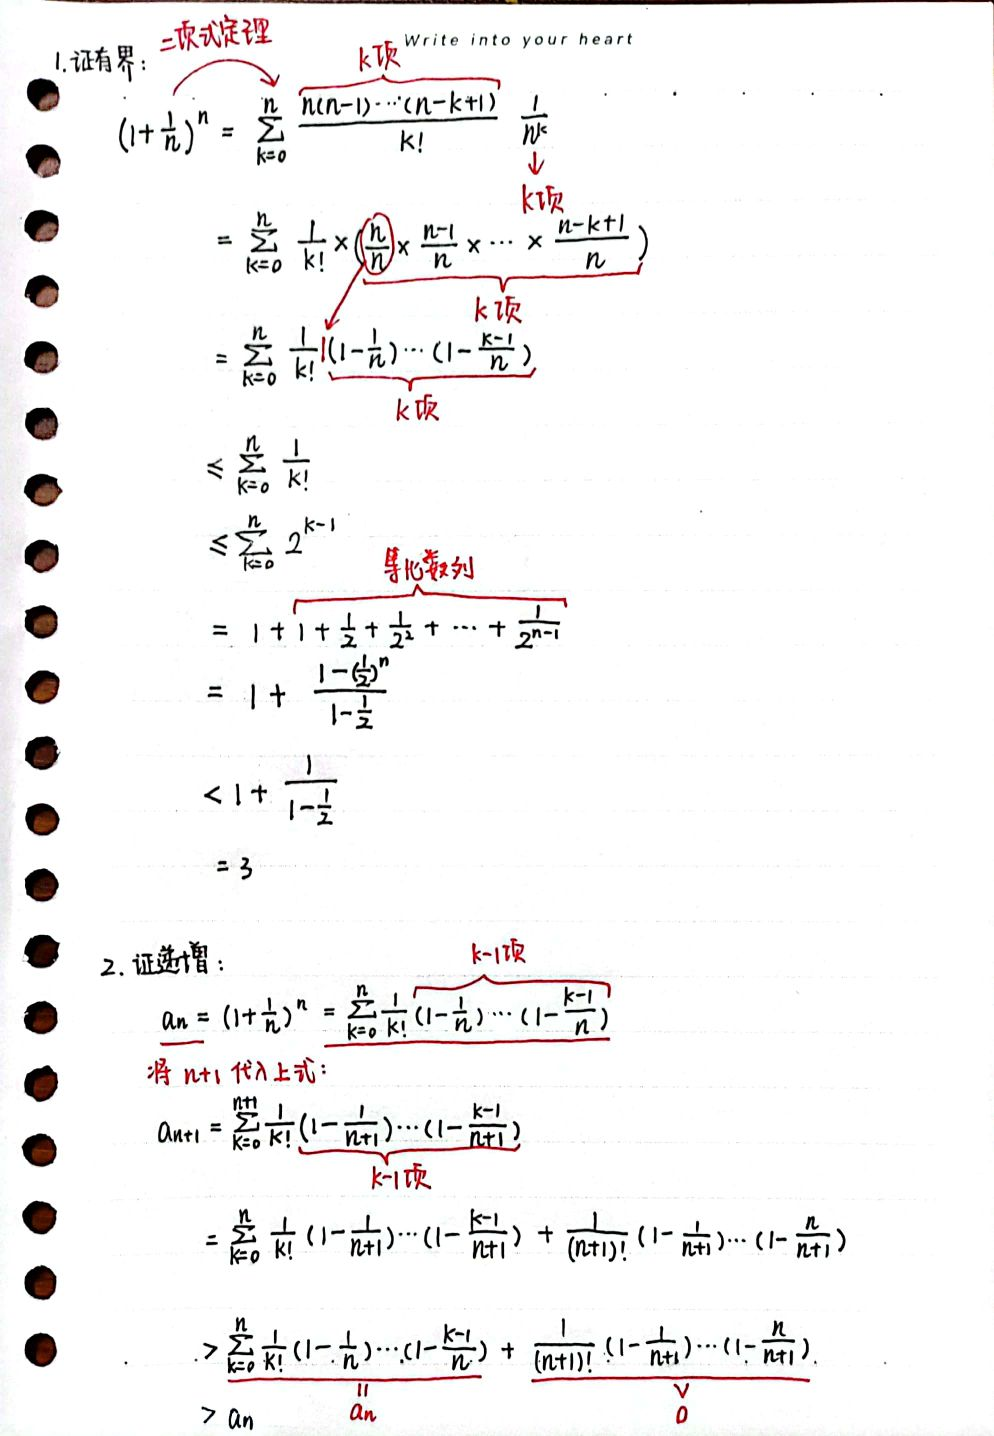 Write into your heart
1. 证有界: 二项式定理
k项
(1+1/n)^n = ∑_{k=0}^{n} n(n-1)…(n-k+1)/k! 1/n^k
↓
k项
= ∑_{k=0}^{n} 1/k! × (n/n × n-1/n × … × n-k+1/n)
k项
= ∑_{k=0}^{n} 1/k! 1(1-1/n)…(1-k-1/n)
k项
≤ ∑_{k=0}^{n} 1/k!
≤ ∑_{k=0}^{n} 2^{k-1}
等比数列
= 1+1+1/2+1/2^2+…+1/2^{n-1}
= 1+ 1-(1/2)^n/1-1/2
< 1+ 1/1-1/2
= 3
2. 证递增:
k-1项
an = (1+1/n)^n = ∑_{k=0}^{n} 1/k! (1-1/n)…(1-k-1/n)
将 n+1 代入上式:
an+1 = ∑_{k=0}^{n+1} 1/k! (1-1/n+1)…(1-k-1/n+1)
k-1项
= ∑_{k=0}^{n} 1/k! (1-1/n+1)…(1-k-1/n+1) + 1/(n+1)! (1-1/n+1)…(1-n/n+1)
> ∑_{k=0}^{n} 1/k! (1-1/n)…(1-k-1/n) + 1/(n+1)! (1-1/n+1)…(1-n/n+1)
= an > 0
> an